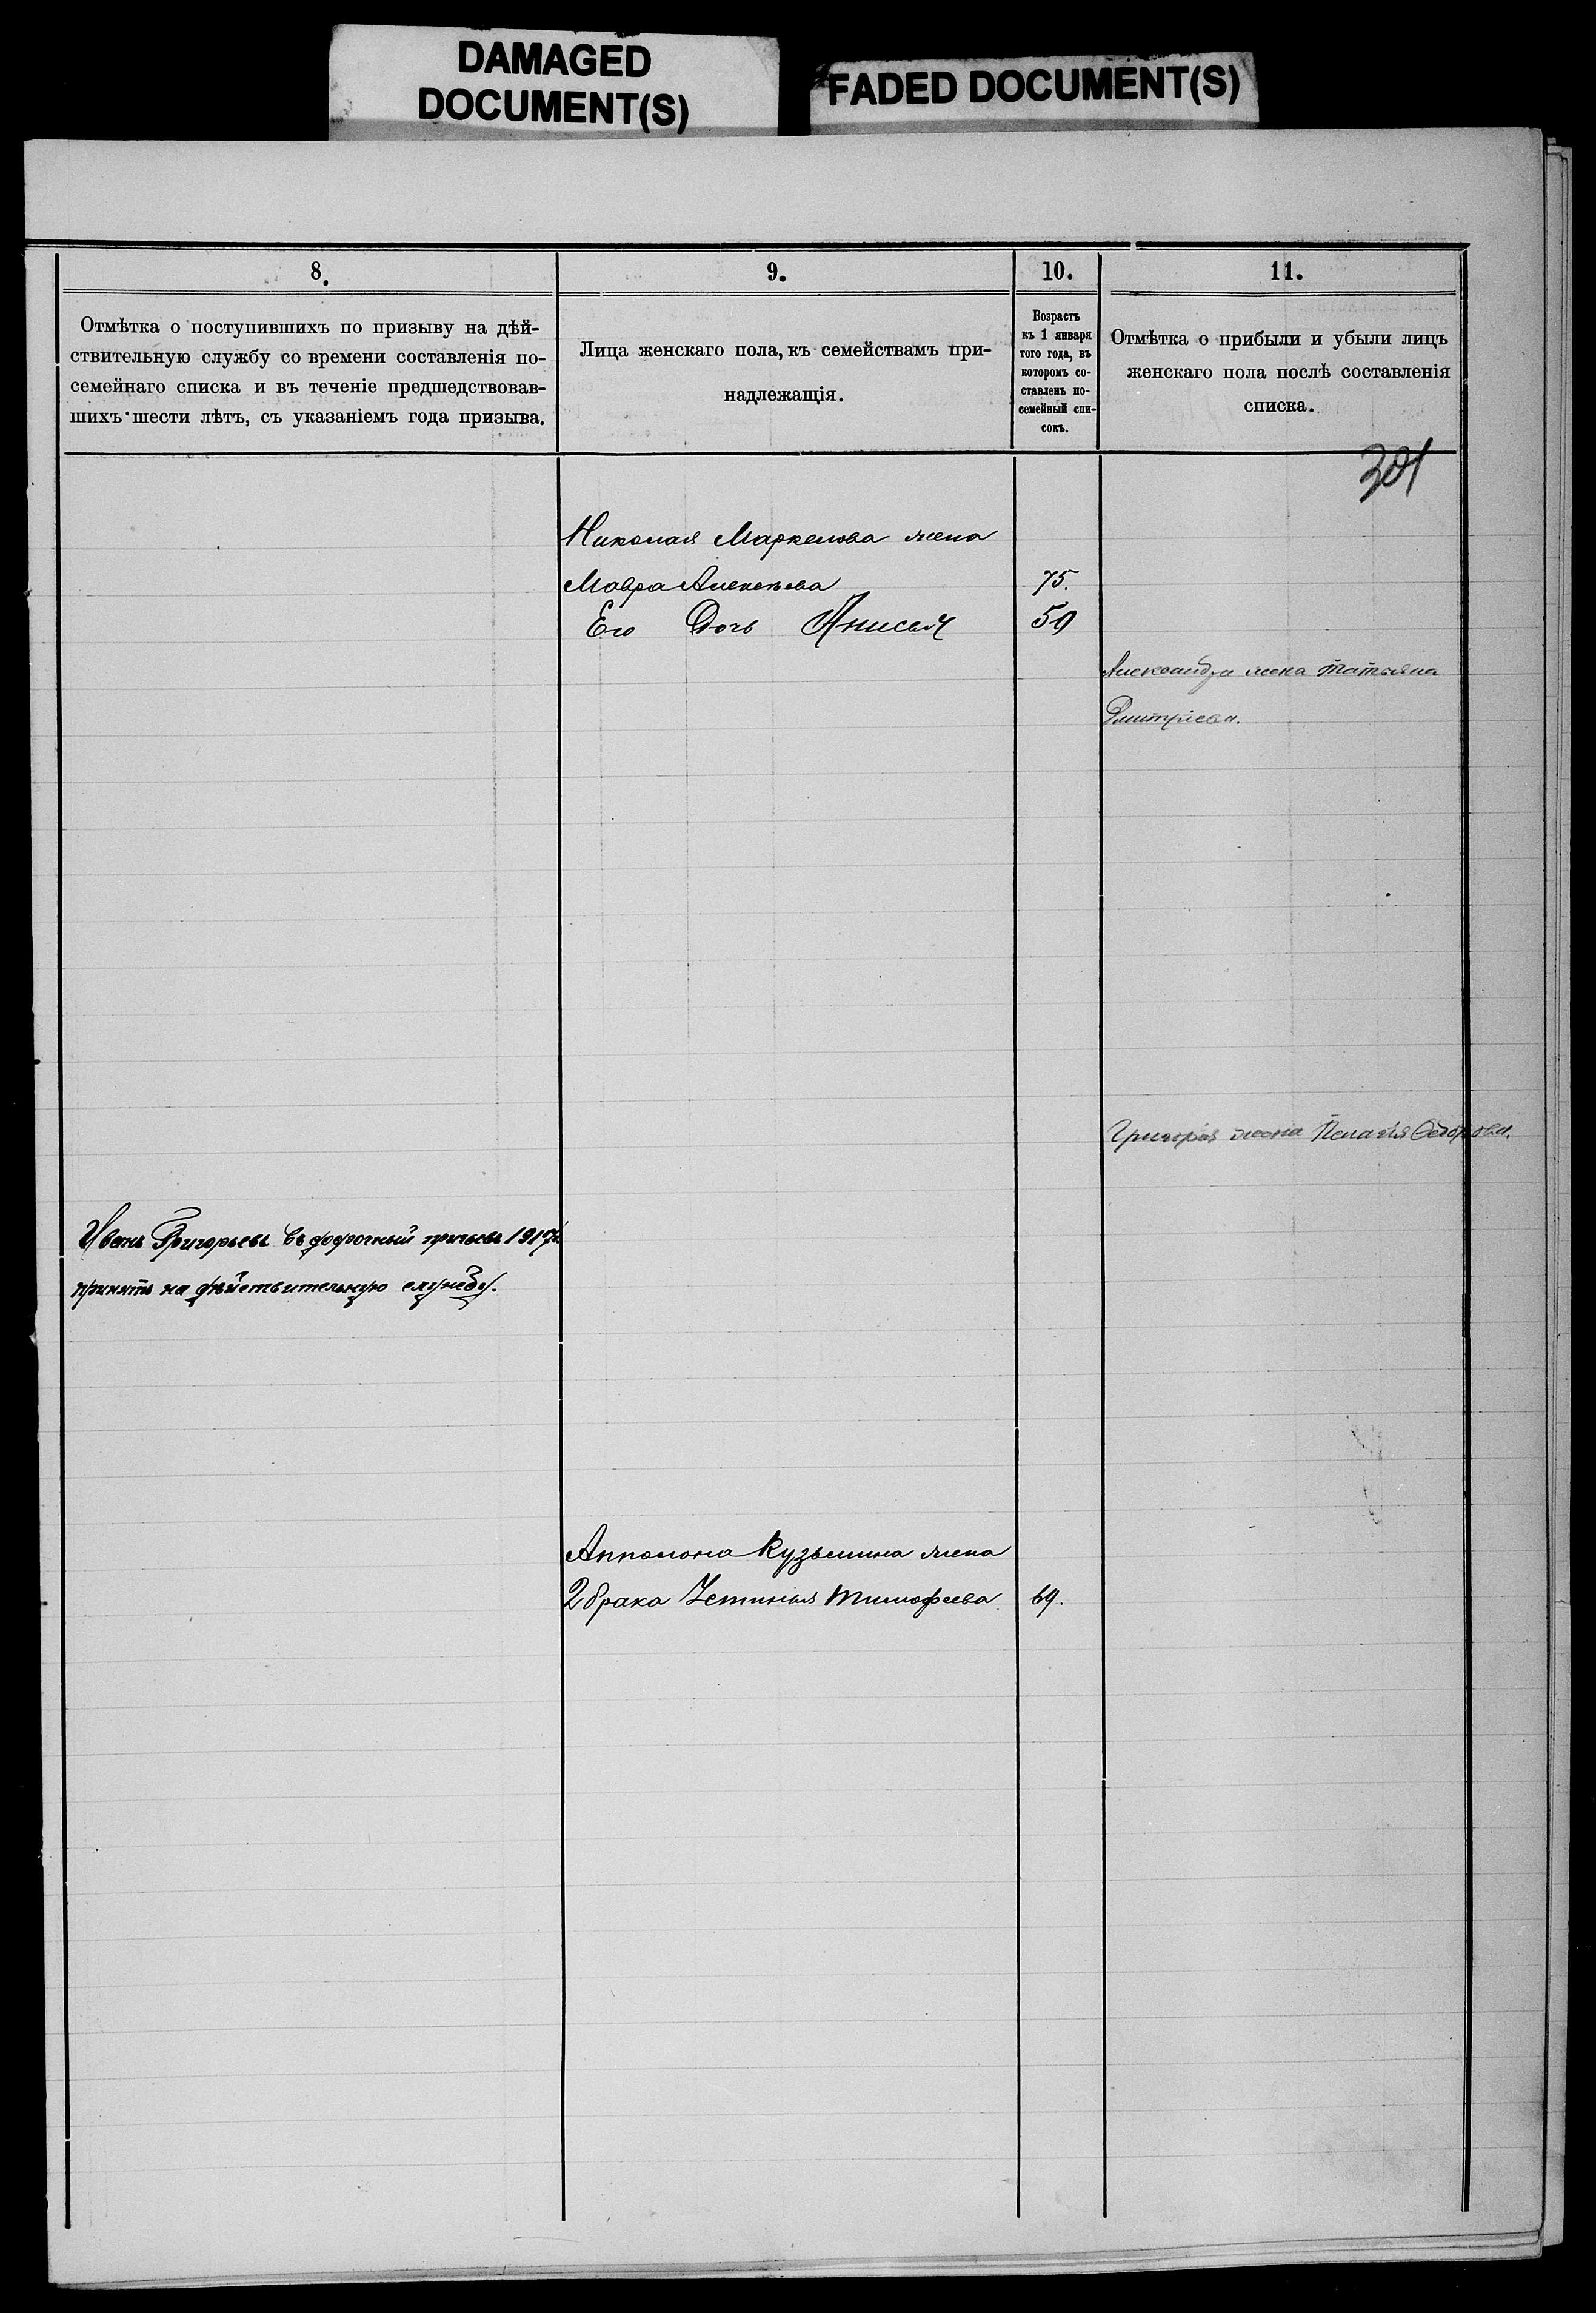 DAMAGED
DOCUMENT(S)
FADED DOCUMENT(S)
8.
9.
10.
11.
Отмѣтка о поступившихъ по призыву на дѣй-
ствительную службу со времени составленія по-
семейнаго списка и въ теченіе предшедствовав-
шихъ шести лѣтъ, съ указаніемъ года призыва.
Лица женскаго пола, къ семействамъ при-
надлежащія.
Возрастъ
къ 1 января
того года, въ
которомъ со-
ставленъ по-
семейный спи-
сокъ.
Отмѣтка о прибыли и убыли лицъ
женскаго пола послѣ составленія
списка.
Николая Маркелова жена
Мавра Алексѣева 75.
Его Дочь Анисья 50
Александра жена Татьяна
Дмитріева.
Григорія жена Пелагія Ѳедорова.
Иванъ Григорьевъ въ досрочный призывъ
принятъ на дѣйствительную службу.
Апполона Кузьмина жена
2 брака Устинья Тимофеева 69.